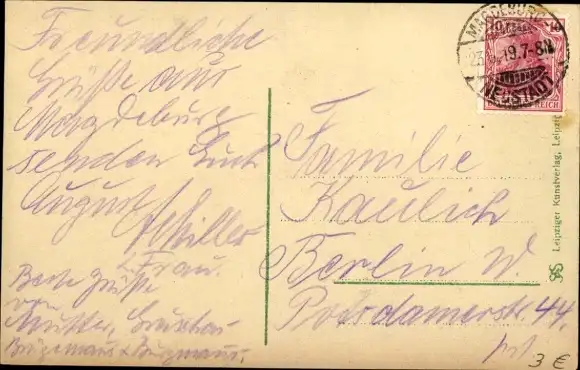 Freundliche
Grüße aus
Magdeburg
senden Euch
August Schiller
& Frau.
Beste Grüße
von
Mutter,
MAGDEBURG
19.7-8N
NEUSTADT
REICH
Familie
Kaulich
Berlin W.
Potsdamerstr. 44.
Leipziger Kunstverlag, Leipzig
3 €